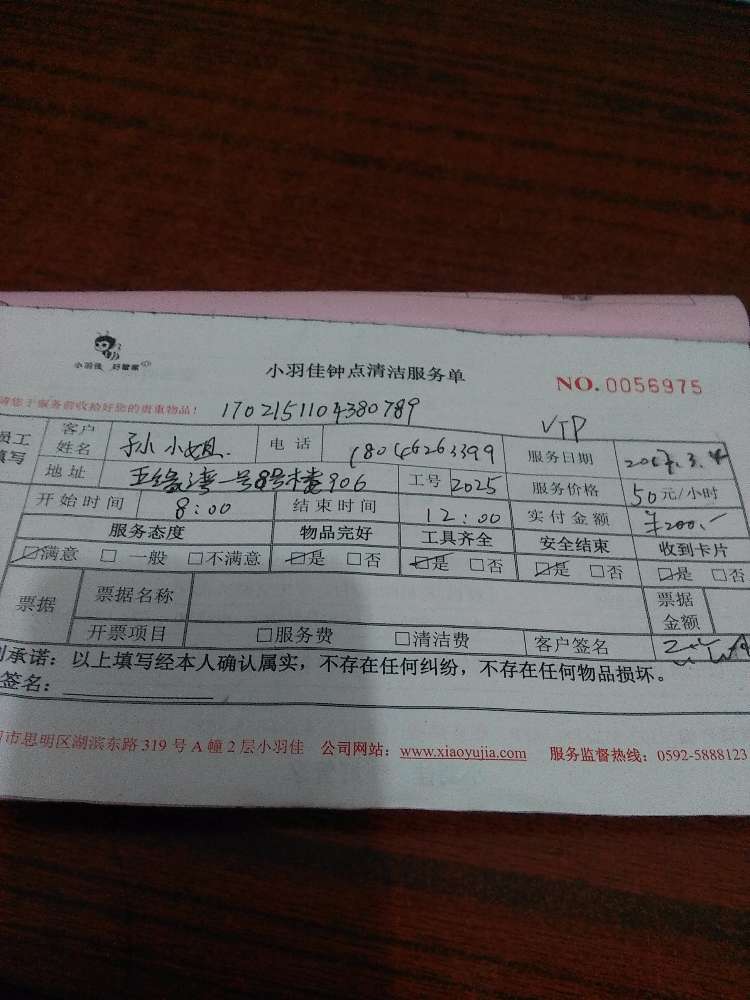 小羽佳 好管家
小羽佳钟点清洁服务单
NO. 0056975
请您于服务前收拾好您的贵重物品！ 1702151104380789
VIP
员工填写 客户姓名 孙小姐 电话 18046263399 服务日期 2017.3.4
地址 五缘湾一号8号楼906 工号 2025 服务价格 50元/小时
开始时间 8:00 结束时间 12:00 实付金额 ¥200.-
服务态度 物品完好 工具齐全 安全结束 收到卡片
☑满意 □一般 □不满意 ☑是 □否 ☑是 □否 ☑是 □否 ☑是 □否
票据 票据名称 票据金额
开票项目 □服务费 □清洁费 客户签名
承诺：以上填写经本人确认属实，不存在任何纠纷，不存在任何物品损坏。
签名：
市思明区湖滨东路 319 号 A 幢 2 层小羽佳 公司网站：www.xiaoyujia.com 服务监督热线：0592-5888123